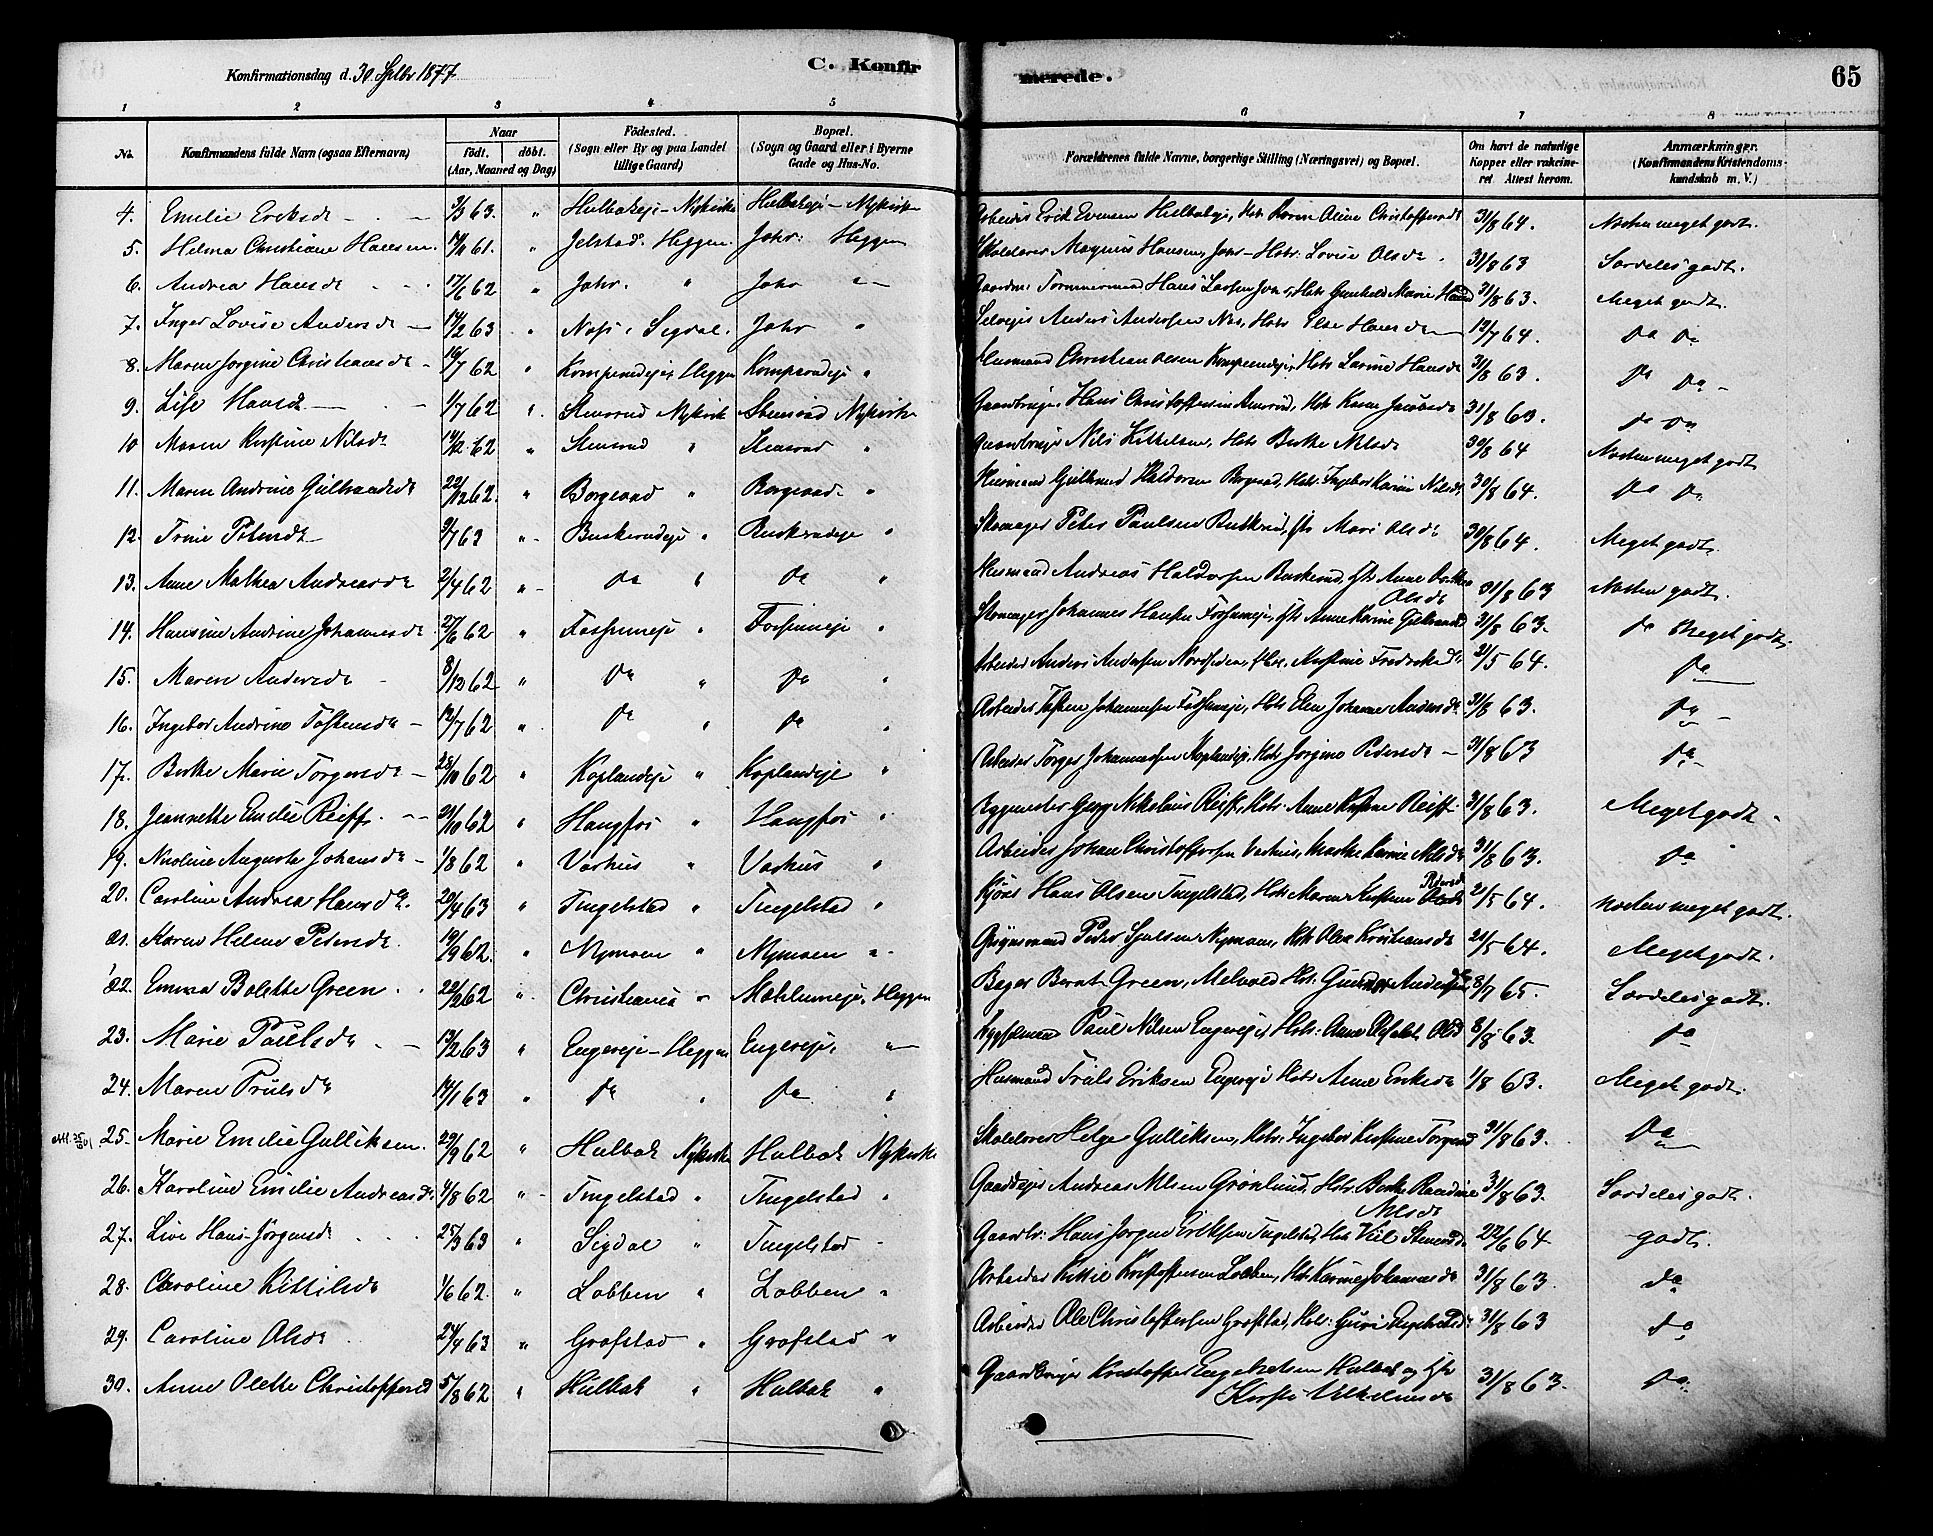 Konfirmationsdag d. 30 Septbr 1877
C. Konfirmerede.
65
1 2 3 4 5 6 7 8
No.
Konfirmandens fulde Navn (ogsaa Efternavn)
Naar födt. döbt. (Aar, Maaned og Dag)
Födested. (Sogn eller By og paa Landet tillige Gaard)
Bopæl. (Sogn og Gaard eller i Byerne Gade og Hus-No.
Forældrenes fulde Navne, borgerlige Stilling (Næringsvei) og Bopæl.
Om havt de naturlige Kopper eller vakcineret. Attest herom.
Anmærkninger. (Konfirmandens Kristendomskundskab m. V.)
4. Emilie Eriksdr 63. " Hulbakeje - Nykirke Hulbakeje - Nykirke Arbeider Erik Evensen Hulbakeje, Hstr Karen Oline Christoffersdr 31/8 64. Næsten meget godt.
5. Helma Christiane Hansen 61. " Jelstad. Heggen Johr: Heggen Skolelærer Magnus Hansen, Johr - Hstr: Lovise Olsdr. 31/8 63 Særdeles godt.
6. Andrea Hansdr 17/6 62 " Johr. " Johr " Tømmermand Hans Larsen Johr, Hstr Gunhild Marie 31/8 63. Meget godt.
7. Inger Lovise Andersdr 63 " Næss i Sigdal. Johr " Selveier Anders Andersen Næs, Hstr Else Hansdr 12/7 64. do do
8. Maren Jørgine Christiansdr 19/7 62 " Komperudeje Heggen Komperudeje " Husmand Christian Olsen Komperudeje, Hstr Larine Hansdr 31/8 63. do do
9. Lise Hansdr 1/7 62 " Stensrud Nykirke Stensrud Nykirke Gaardbruger Hans Christoffersen Stensrud, Hstr Karen Jacobsdr 31/8 63. do do
10 Maren Kirstine Nilsdr 14/12 62 " Stensrud " Stensrud " Gaardbruger Nils Kittelsen, Hstr Berthe Nilsdr 30/8 64 Næsten meget godt
11. Maren Andrine Gulbrandsdr 22/12 62. " Borgerud " Borgerud " Husmand Gulbrand Haldorsen Borgerud, Hstr Ingebor Karine Nilsdr 30/8 64. do do
12. Trine Petersdr 9/7 63 " Buskerudeje " Buskerudeje " Skomager Peter Paulsen Buskerud, Hstr Mari Olsdr 30/8 64. Meget godt.
13. Anne Mathea Andreasdr 2/4 62 " do " do " Husmand Andreas Haldorsen Buskerud, Hstr Anne Olsdr 31/8 63 Næsten godt.
14. Hansine Andrine Johannesdr 27/6 62 " Fossumeje " Fossumeje " Skomager Johannes Hansen Fossumeje, Hstr Anne Karine Gulbrandsd 31/8 63. do Meget godt.
15. Maren Andersdr 8/12 62 " do " do " Arbeider Anders Andersen Nordseden, Hstr Kirstine Fredriksdr 21/5 64. do
16. Ingebor Andrine Tostensdr 12/7 62 " do " do " Arbeider Tosten Johannesen Fossumeje, Hstr Elen Johanne Andersdr 31/8 63. do
17. Berthe Marie Torgersdr 28/10 62 " Koplandeje " Koplandeje " Arbeider Torger Johannesen Koplandeje, Hstr Jørgine Pedersdr 31/8 63 do
18. Jeannette Emilie Reiff. 62 " Haugfos " Haugfos " Bygmester Georg Nikolaus Reiff, Hstr: Anne Kirstine Reiff. 31/8 63. Meget godt
19. Nicoline Augusta Johansdr 1/8 62 " Vashus " Vashus " Arbeider Johan Christoffersen Vashus, Marthe Karine Nilsdr 31/8 63. do
20. Caroline Andrea Hansdr. 20/4 63 " Tingelstad " Tingelstad " Hans Olsen Tingelstad, Hstr Maren Kirstine Pedersd 21/5 64. Næsten meget godt.
21. Karen Helene Pedersdr. 19/9 62. " Nymoen " Nymoen " Peder Nymoen, Hstr Olea Kristiansdr 21/5 64. Meget godt.
22. Emma Bolette Green. 62 " Christiania " Møhlumeje, Heggen Bager Bernt Green, Melvold Hstr: 8/7 65. Særdeles godt.
23. Marie Paulsdr 13/2 63 " Engereje - Heggen Engereje " Paul Nilsen Engereje, Hstr: Anne 8/8 63. do
24. Maren Trulsdr 14/1 63 " do " do " Husmand Truls Eriksen Engereje Hstr Anne Eriksdr 1/8 63. Meget godt.
25. Marie Emilie Gulliksen. 29/9 62 " Hulbak Nykirke Hulbak Nykirke Skolelærer Helge Gulliksen, Hstr: Ingebor Kirstine Torgersd 31/8 63. do
26. Karoline Emilie Andreasdr 4/8 62 " Tingelstad " Tingelstad " Gaardbruger Andreas Nilsen Grønlund, Hstr. Berthe Randine Nilsdr 31/8 63. Særdeles godt.
27. Live Hans-Jørgensdr 25/3 63 " Sigdal " Tingelstad " Gaardbr: Hans Jørgen Eriksen Tingelstad, Hstr 22/6 64 godt.
28. Caroline Kittilsdr 1/6 62. " Lobben " Lobben " Arbeider Kittil Kristoffersen Lobben, Hstr Karine Johannesdr 31/8 63 do
29. Caroline Olsdr 24/4 63 " Grøfstad " Grøfstad " Arbeider Ole Christoffersen Grøfstad, Hstr: Guri 31/8 63 do
30. Anne Olette Christoffersd 5/8 62 " Hulbak " Hulbak " Gaardbruger Kristoffer Engebretsen Hulbak og Hstr Kirsti Vilhelmsdr 31/8 63. do